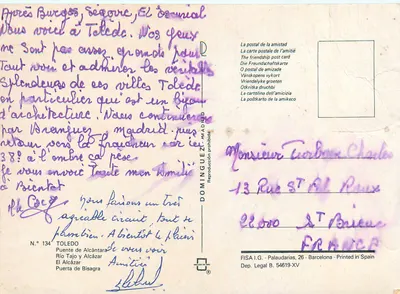 Après Burgos, Segovie, El Escorial
Nous voici à Tolède. Nos yeux
ne sont pas assez grands pour
tout voir et admirer les véritables
Splendeurs de ces villes Tolède
en particulier qui est un Bijou
d'architecture. Nous continuerons
par Aranjuez, madrid, puis
retour vers la fraîcheur car ici
38° à l'ombre ça pèse
Je vous envoie toute mon Amitié
à Bientôt
Nous faisons un très
agréable circuit, tout se
passe bien. A bientôt le plaisir
de vous voir
Amitiés
N.° 134 TOLEDO
Puente de Alcántara
Río Tajo y Alcázar
El Alcázar
Puerta de Bisagra
DOMINGUEZ
MADRID
Reproducción prohibida
La postal de la amistad
La carte postale de l'amitié
Die Freundschaftskarte
The friendship post card
O postal de amizade
Vänskapens vykort
Vriendelijke groeten
La cartolina dell'amicizia
La postkarto de la amikeco
Monsieur Charles
13 Rue St
22000 St Brieuc
FRANCE
FISA I.G. - Palaudarias, 26 - Barcelona - Printed in Spain
Dep. Legal B. 54619-XV